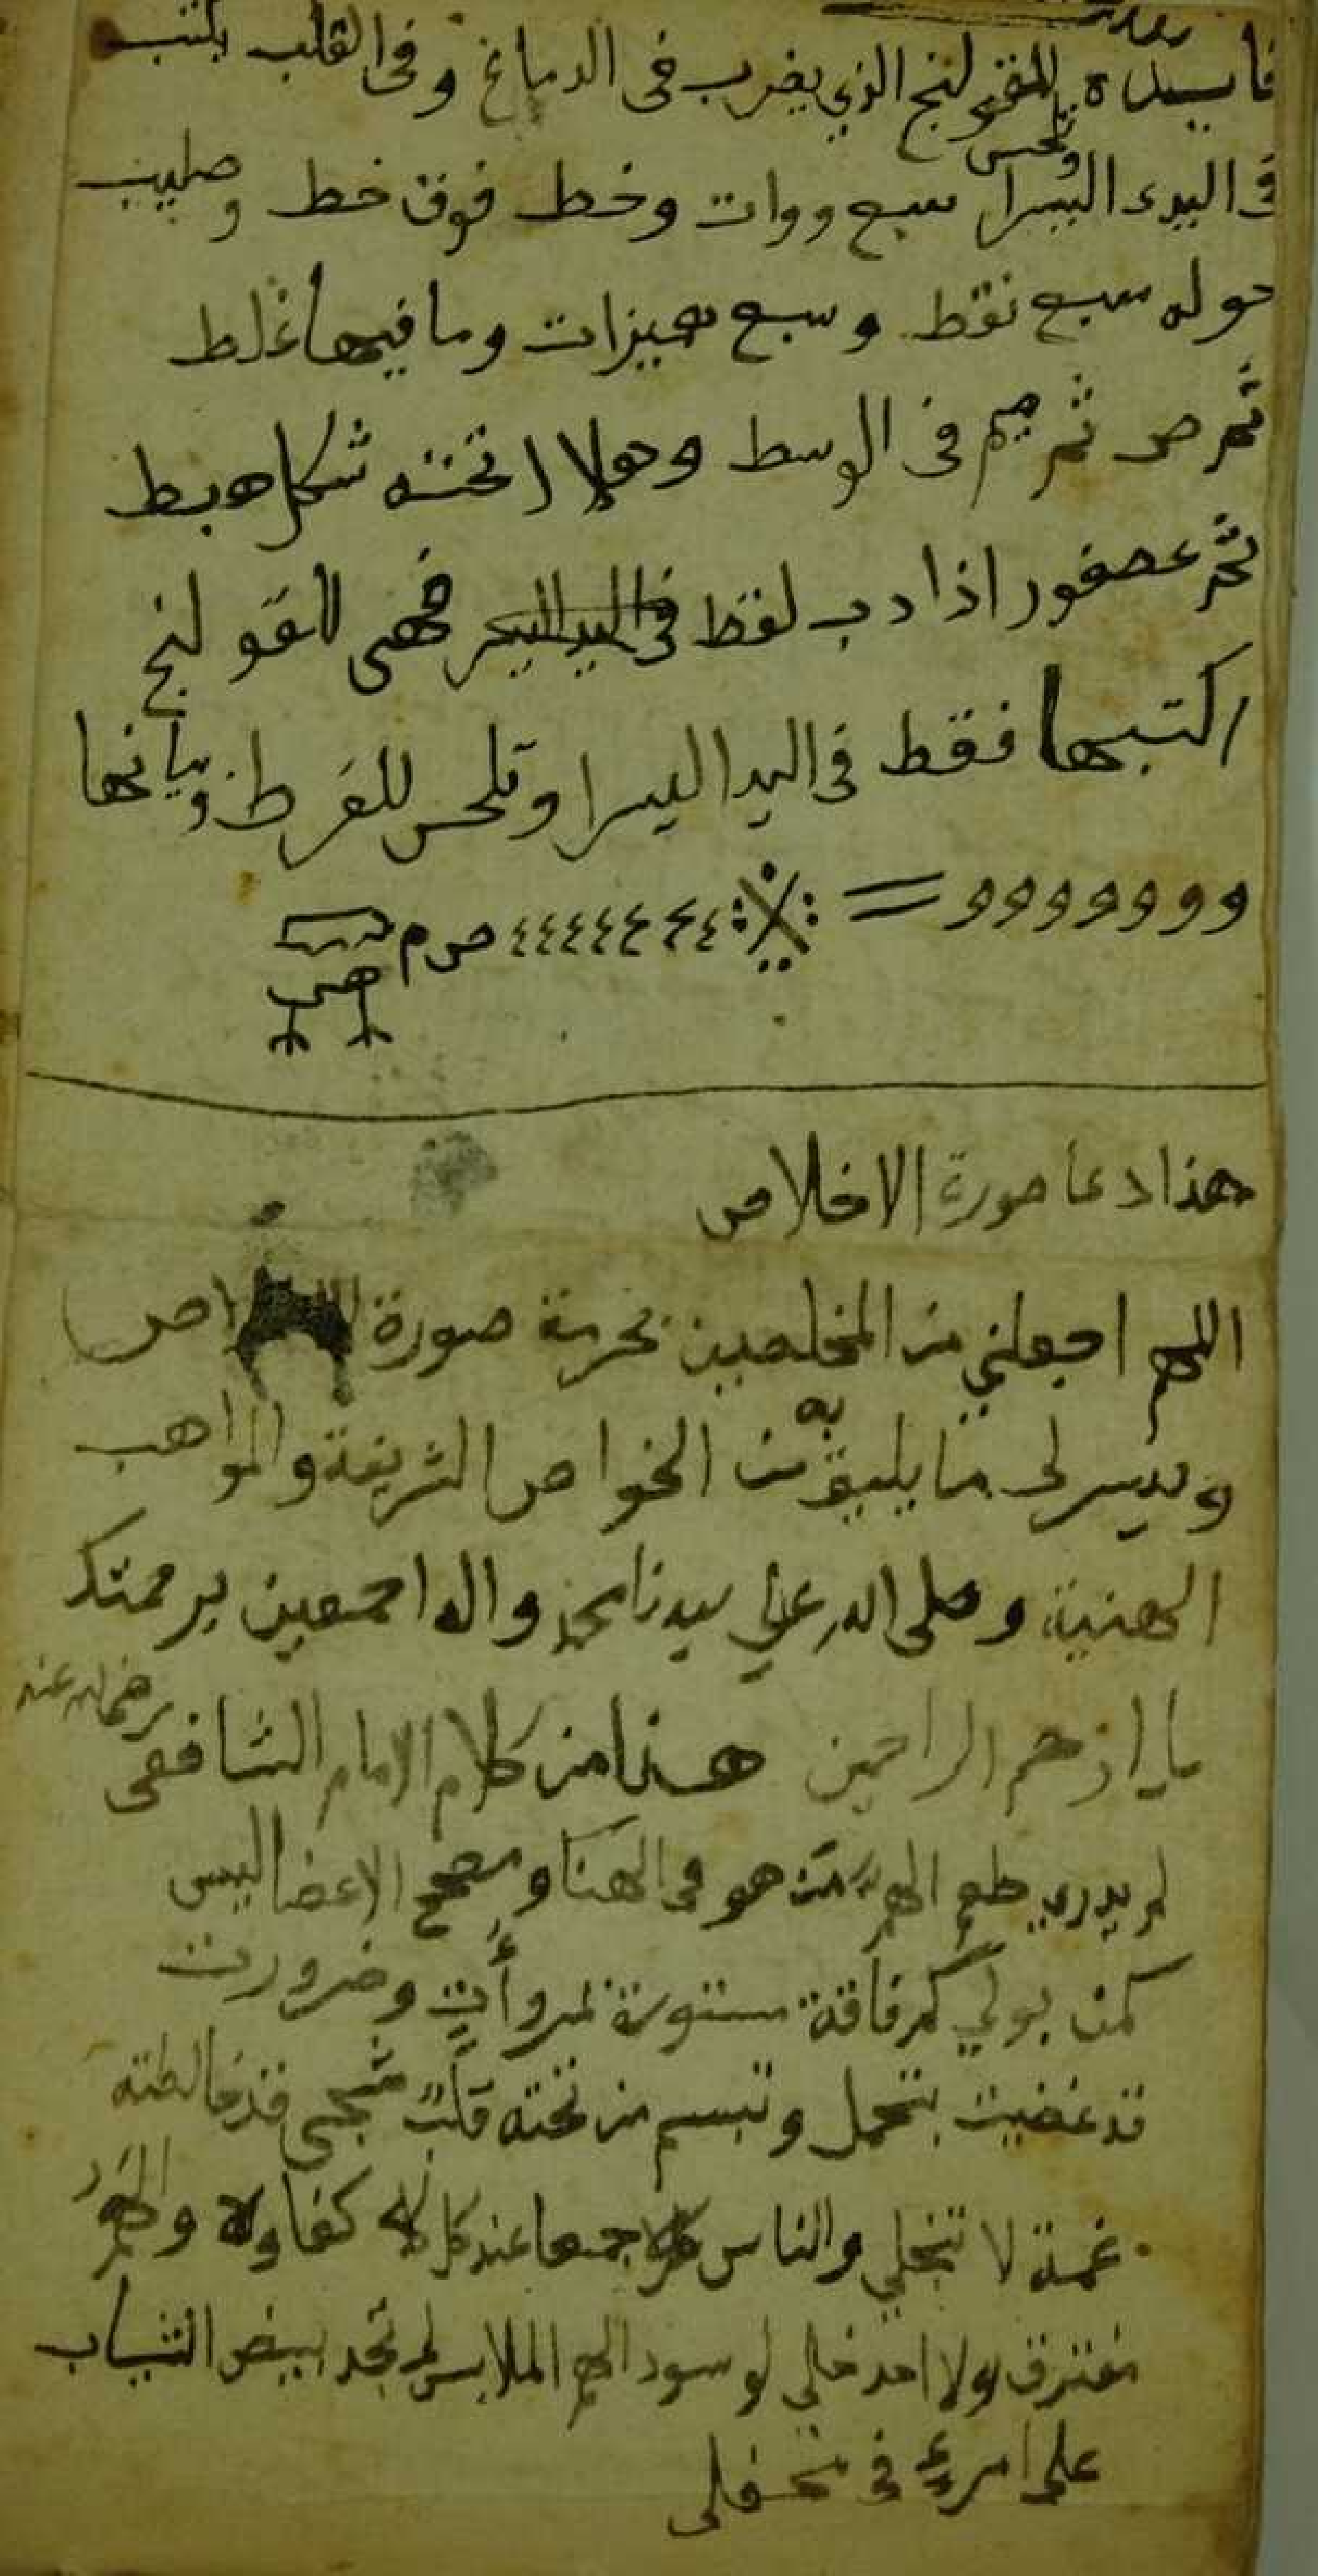 فايده للقولنج الذي يضرب في الدماغ وفي القلب يكتب
في اليد اليسرا وتلحس سبع ووات وخط فوق خط وصليب
حوله سبع نقط وسبع هميزات وما فيها غلط
ثم ص ثم ميم في الوسط وهولا تحته شكل هبط
ثم عصفور اذا دب لقط في اليد اليسر فهي للقولنج
اكتبها فقط في اليد اليسرا وتلحس للفرط وبيانها
و و و و و و و = ء ء ء ء ء ء ء ص م
هذا دعا صورة الاخلاص
اللهم اجعلني من المخلصين بحرمة صورة
ويسر لي ما يليق به من الخواص الشريفة والمواهب
الهنية وصلى الله علي سيدنا محمد واله اجمعين برحمتك
يا ارحم الراحمين هذا من كلام الامام الشافعى رضي الله عنه
لم يدري طعم الهم من هو في الهنا وصحيح الاعضا ليس
كمن بولي كم فاقة مستورة بمروأت وضرورت
قد غضيت بتحمل وتبسم من تحته قلب شجي قد خالطته
غمة لا تنجلي والناس جمعا عند كل كفاوله والهم
مفترق ولا احد خلي لو سود الهم الملابس لم تجد بيض الثياب
على امرئ في محفلي